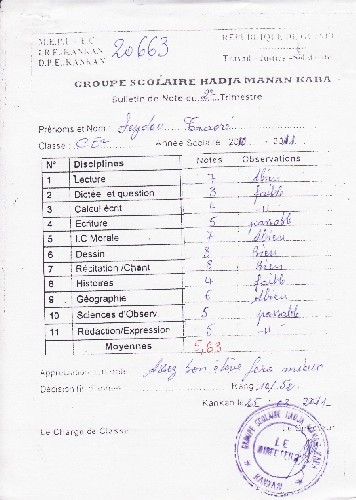 M.E.P.U - E.C
20663
REPUBLIQUE DE GUINEE
I.R.E. KANKAN
D.P.E. KANKAN
Travail - Justice - Solidarité
GROUPE SCOLAIRE HADJA MANAN KABA
Bulletin de Note du 2e Trimestre
Prénoms et Nom : Seydou Traoré
Classe : Année Scolaire
N° Disciplines Notes Observations
1 Lecture 7 Abien
2 Dictée et question 3 faible
3 Calcul écrit 4 "
4 Ecriture 5 passable
5 I.C Morale 7 Abien
6 Dessin 8 Bien
7 Récitation /Chant 8 Bien
8 Histoires 4 faible
9 Géographie 6 Abien
10 Sciences d'Observ. 5 passable
11 Rédaction/Expression 5 "
Moyennes 5,63
Assez bon élève fera mieux
Rang
Kankan le
Le Chargé de Classe Le Directeur
GROUPE SCOLAIRE HADJA MANAN KABA
LE DIRECTEUR
KANKAN